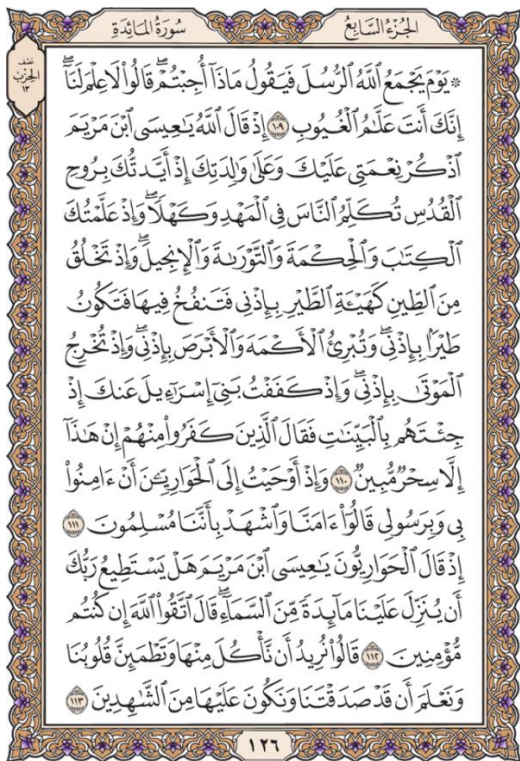 الجزء السابع
سورة المائدة
نصف
الحزب
١٣
۞ يَوْمَ يَجْمَعُ ٱللَّهُ ٱلرُّسُلَ فَيَقُولُ مَاذَآ أُجِبْتُمْۖ قَالُوا۟ لَا عِلْمَ لَنَآۖ
إِنَّكَ أَنتَ عَلَّٰمُ ٱلْغُيُوبِ ١٠٩ إِذْ قَالَ ٱللَّهُ يَٰعِيسَى ٱبْنَ مَرْيَمَ
ٱذْكُرْ نِعْمَتِى عَلَيْكَ وَعَلَىٰ وَٰلِدَتِكَ إِذْ أَيَّدتُّكَ بِرُوحِ
ٱلْقُدُسِ تُكَلِّمُ ٱلنَّاسَ فِى ٱلْمَهْدِ وَكَهْلًاۖ وَإِذْ عَلَّمْتُكَ
ٱلْكِتَٰبَ وَٱلْحِكْمَةَ وَٱلتَّوْرَىٰةَ وَٱلْإِنجِيلَۖ وَإِذْ تَخْلُقُ
مِنَ ٱلطِّينِ كَهَيْـَٔةِ ٱلطَّيْرِ بِإِذْنِى فَتَنفُخُ فِيهَا فَتَكُونُ
طَيْرًۢا بِإِذْنِىۖ وَتُبْرِئُ ٱلْأَكْمَهَ وَٱلْأَبْرَصَ بِإِذْنِىۖ وَإِذْ تُخْرِجُ
ٱلْمَوْتَىٰ بِإِذْنِىۖ وَإِذْ كَفَفْتُ بَنِىٓ إِسْرَٰٓءِيلَ عَنكَ إِذْ
جِئْتَهُم بِٱلْبَيِّنَٰتِ فَقَالَ ٱلَّذِينَ كَفَرُوا۟ مِنْهُمْ إِنْ هَٰذَآ
إِلَّا سِحْرٌ مُّبِينٌ ١١٠ وَإِذْ أَوْحَيْتُ إِلَى ٱلْحَوَارِيِّـۧنَ أَنْ ءَامِنُوا۟
بِى وَبِرَسُولِى قَالُوٓا۟ ءَامَنَّا وَٱشْهَدْ بِأَنَّنَا مُسْلِمُونَ ١١١
إِذْ قَالَ ٱلْحَوَارِيُّونَ يَٰعِيسَى ٱبْنَ مَرْيَمَ هَلْ يَسْتَطِيعُ رَبُّكَ
أَن يُنَزِّلَ عَلَيْنَا مَآئِدَةً مِّنَ ٱلسَّمَآءِۖ قَالَ ٱتَّقُوا۟ ٱللَّهَ إِن كُنتُم
مُّؤْمِنِينَ ١١٢ قَالُوا۟ نُرِيدُ أَن نَّأْكُلَ مِنْهَا وَتَطْمَئِنَّ قُلُوبُنَا
وَنَعْلَمَ أَن قَدْ صَدَقْتَنَا وَنَكُونَ عَلَيْهَا مِنَ ٱلشَّٰهِدِينَ ١١٣
١٢٦